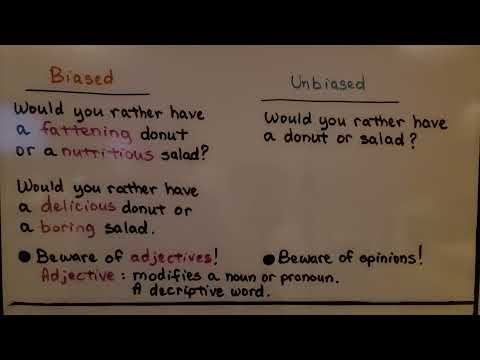 Biased
Would you rather have
a fattening donut
or a nutritious salad?
Would you rather have
a delicious donut or
a boring salad.
● Beware of adjectives!
Adjective : modifies a noun or pronoun.
A decriptive word.
Unbiased
Would you rather have
a donut or salad?
● Beware of opinions!